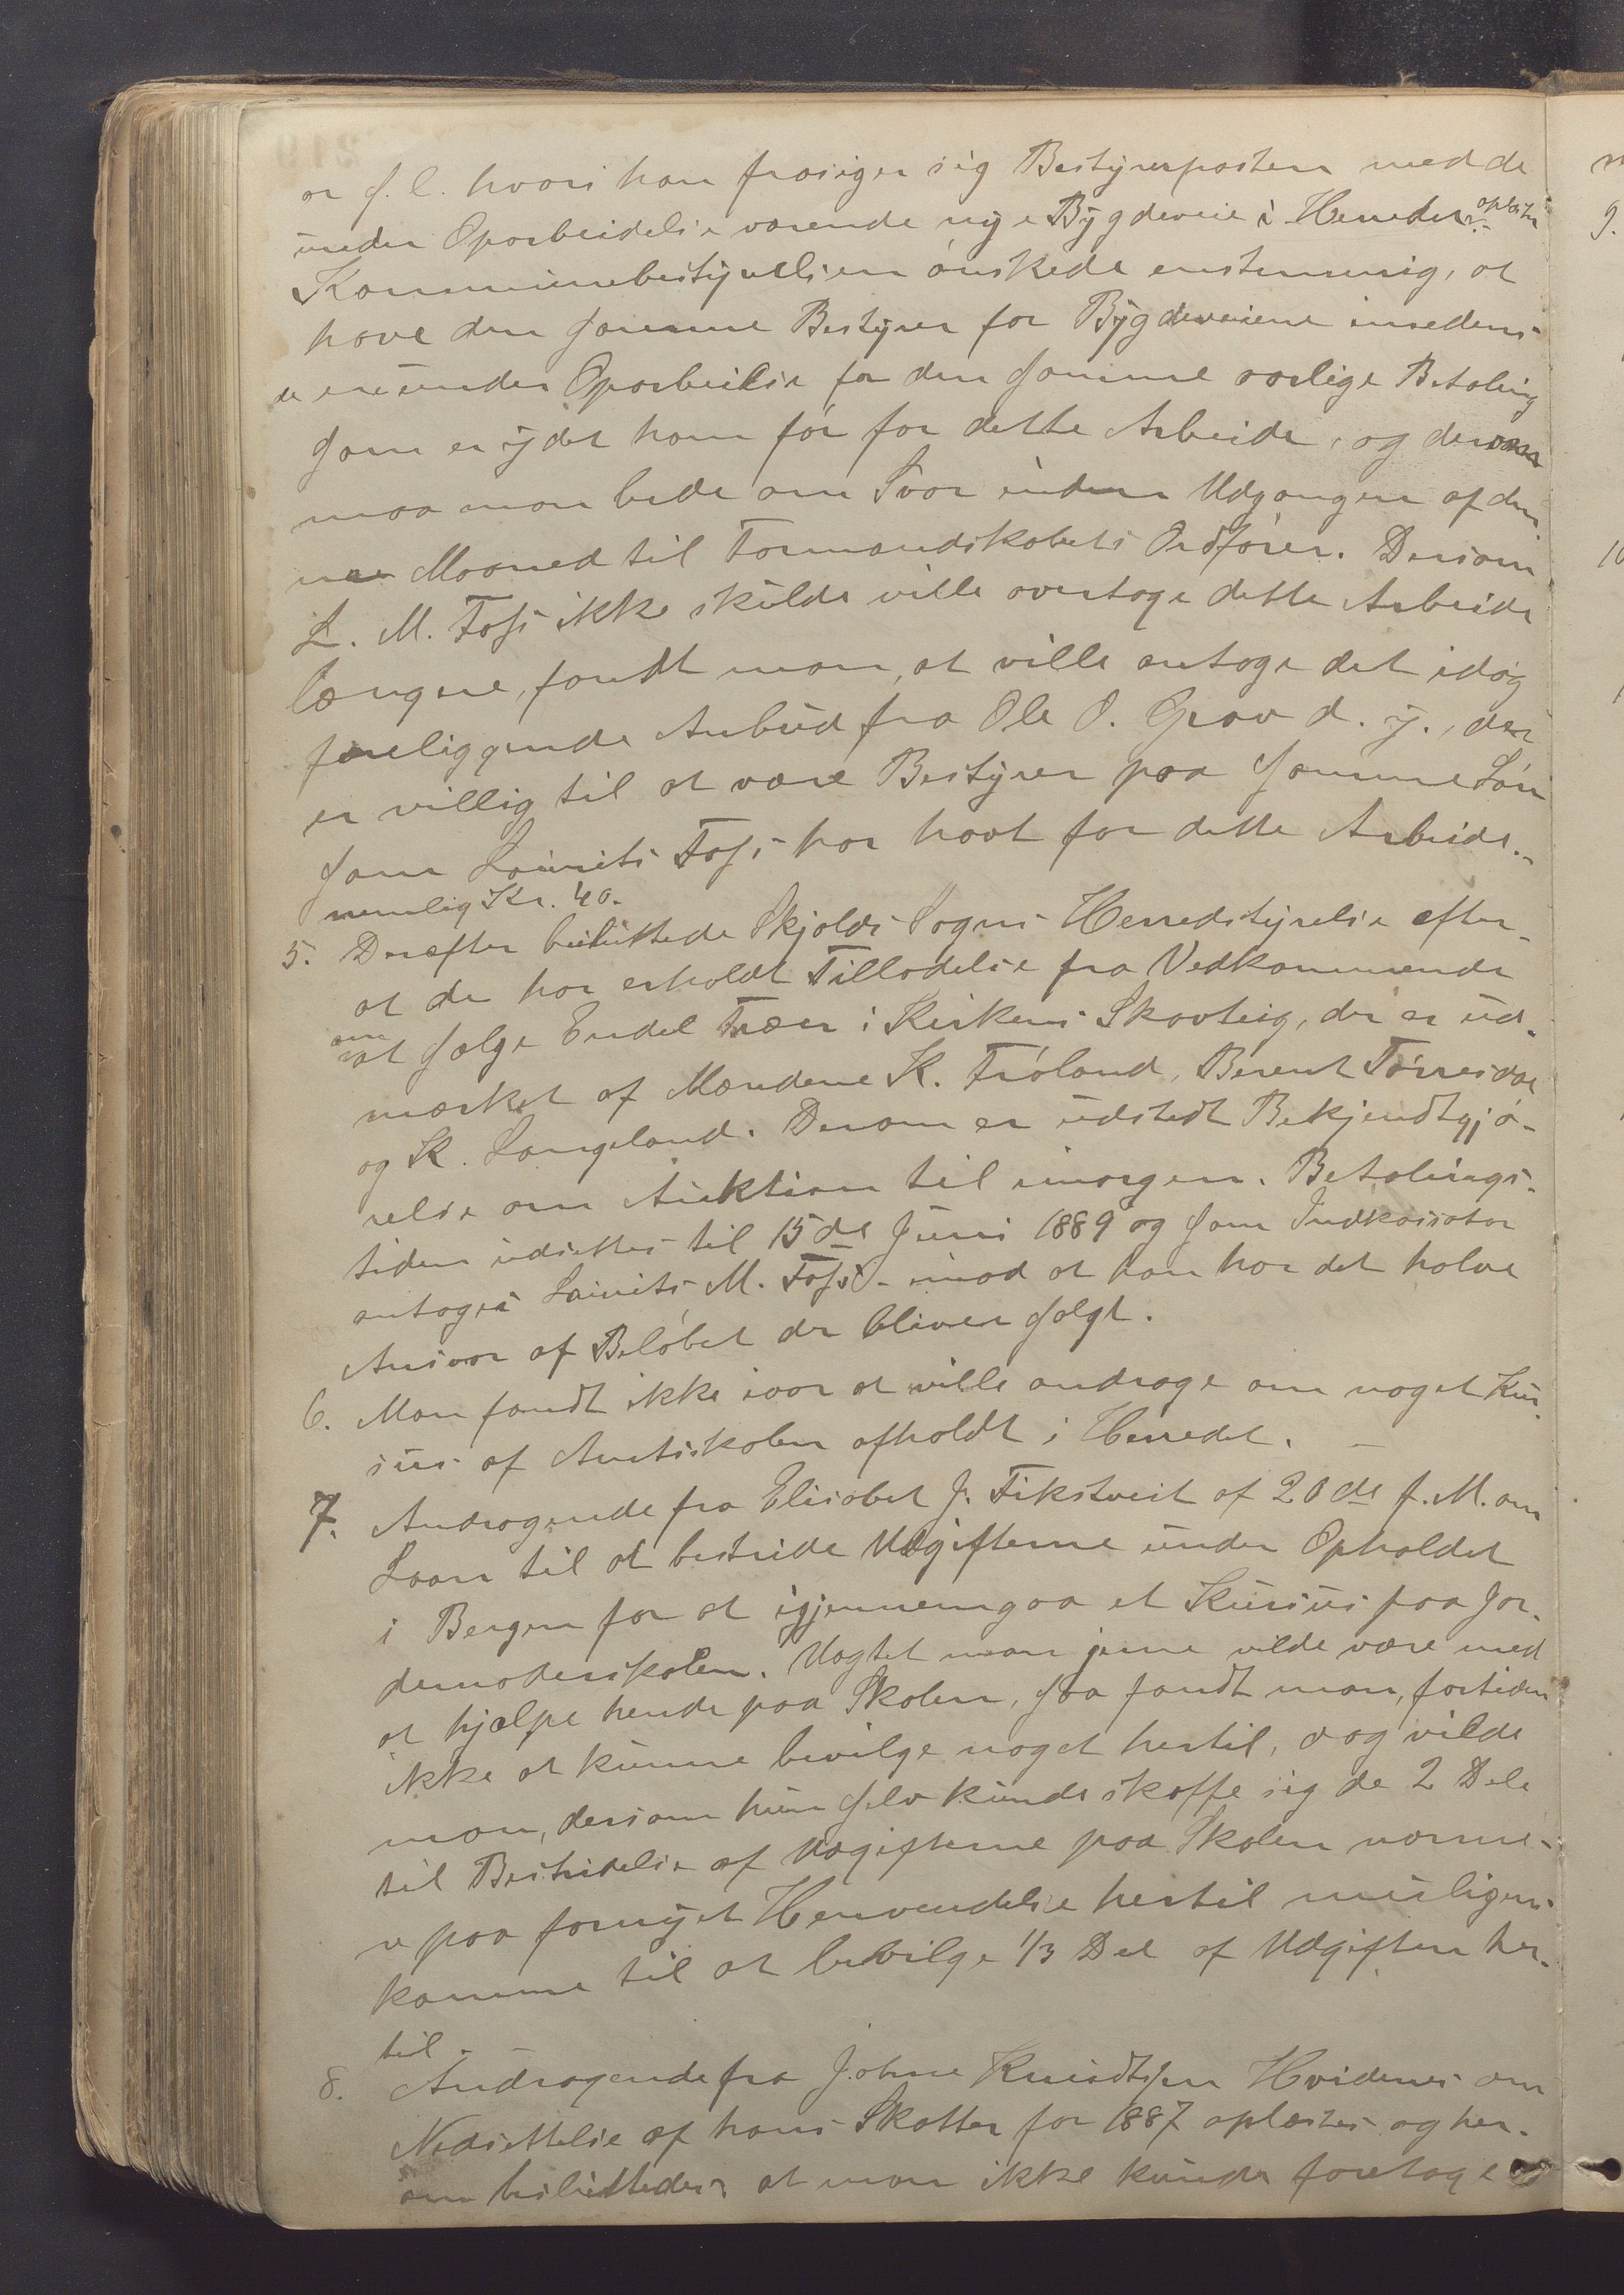 ar f. l. hvori han frasiger sig Bestyrerposten med de
under Oparbeidelse værende nye Bygdeveie i Herredet oplæstes.
Kommunebestyrelsen ønskede enstemmig, at
have den samme Bestyrer for Bygdeveiene
under Oparbeidelse for den samme aarlige Betaling
som er ydet ham før for dette Arbeide, og derom
maa man bede om Svar inden Udgangen af den
ne Maaned til Formandskabets Ordfører. Dersom
L. M. Foss ikke skulde ville overtage dette Arbeide
længere, fandt man, at ville antage det idag
foreliggende Anbud fra Ole O. Grov d. y., der
er villig til at være Bestyrer paa samme Løn
som Laurits Foss har havt for dette Arbeide.
nemlig Kr. 40.
5. Derefter besluttede Skjolds Sogns Herredstyrelse efter-
at de har erholdt Tilladelse fra Vedkommende
om at sælge Endel Træer i Kirkens Skovteig, der er ud-
mærket af Mændene K. Frøland, Berent Tørresdal
og K. Langeland. Derom er udstedt Bekjendtgjø-
relse om Auktion til imorgen. Betalings-
tiden udsættes til 15de Juni 1889 og som Indkassator
antages Laurits M. Foss - imod at han har det halve
Ansvar af Beløbet der bliver solgt.
6. Man fandt ikke iaar at ville andrage om noget Kur-
sus af Amtsskolen afholdt i Herredet. —
7. Andragende fra Elisabet J. Fikstveit af 20de f. M. om
Laan til at bestride Udgifterne under Opholdet
i Bergen for at igjennemgaa et Kursus paa Jor-
demoderskolen. Uagtet man gjerne vilde være med
at hjælpe hende paa Skolen, saa fandt man, fortiden
ikke at kunne bevilge noget hertil, dog vilde
man, dersom hun selv kunde skaffe sig de 2 Dele
til Bestridelse af Udgifterne paa Skolen
paa fornyet Henvendelse hertil muligens
komme til at bevilge 1/3 Del af Udgiften her-
til.
8. Andragende fra Johne Knudtsen Hvidenes om
Nedsættelse af hans Skatter for 1887 oplæstes og her-
om besluttedes at man ikke kunde foretage